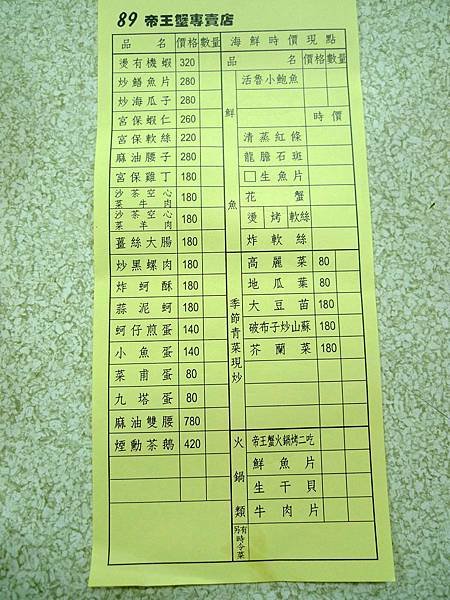 89 帝王蟹專賣店
品名 價格 數量
燙有機蝦 320
炒鱔魚片 280
炒海瓜子 280
宮保蝦仁 260
宮保軟絲 220
麻油腰子 280
宮保雞丁 180
沙茶空心菜牛肉 180
沙茶空心菜羊肉 180
薑絲大腸 180
炒黑螺肉 180
炸蚵酥 180
蒜泥蚵 180
蚵仔煎蛋 140
小魚蛋 140
菜甫蛋 80
九塔蛋 80
麻油雙腰 780
煙勳茶鵝 420
海鮮時價現點
品名 價格 數量
鮮魚
活魯小鮑魚
時價
清蒸紅條
龍膽石斑
□生魚片
花蟹
燙烤軟絲
炸軟絲
季節青菜現炒
高麗菜 80
地瓜葉 80
大豆苗 180
破布子炒山蘇 180
芥蘭菜 180
火鍋類
帝王蟹火鍋烤二吃
鮮魚片
生干貝
牛肉片
另有時令菜